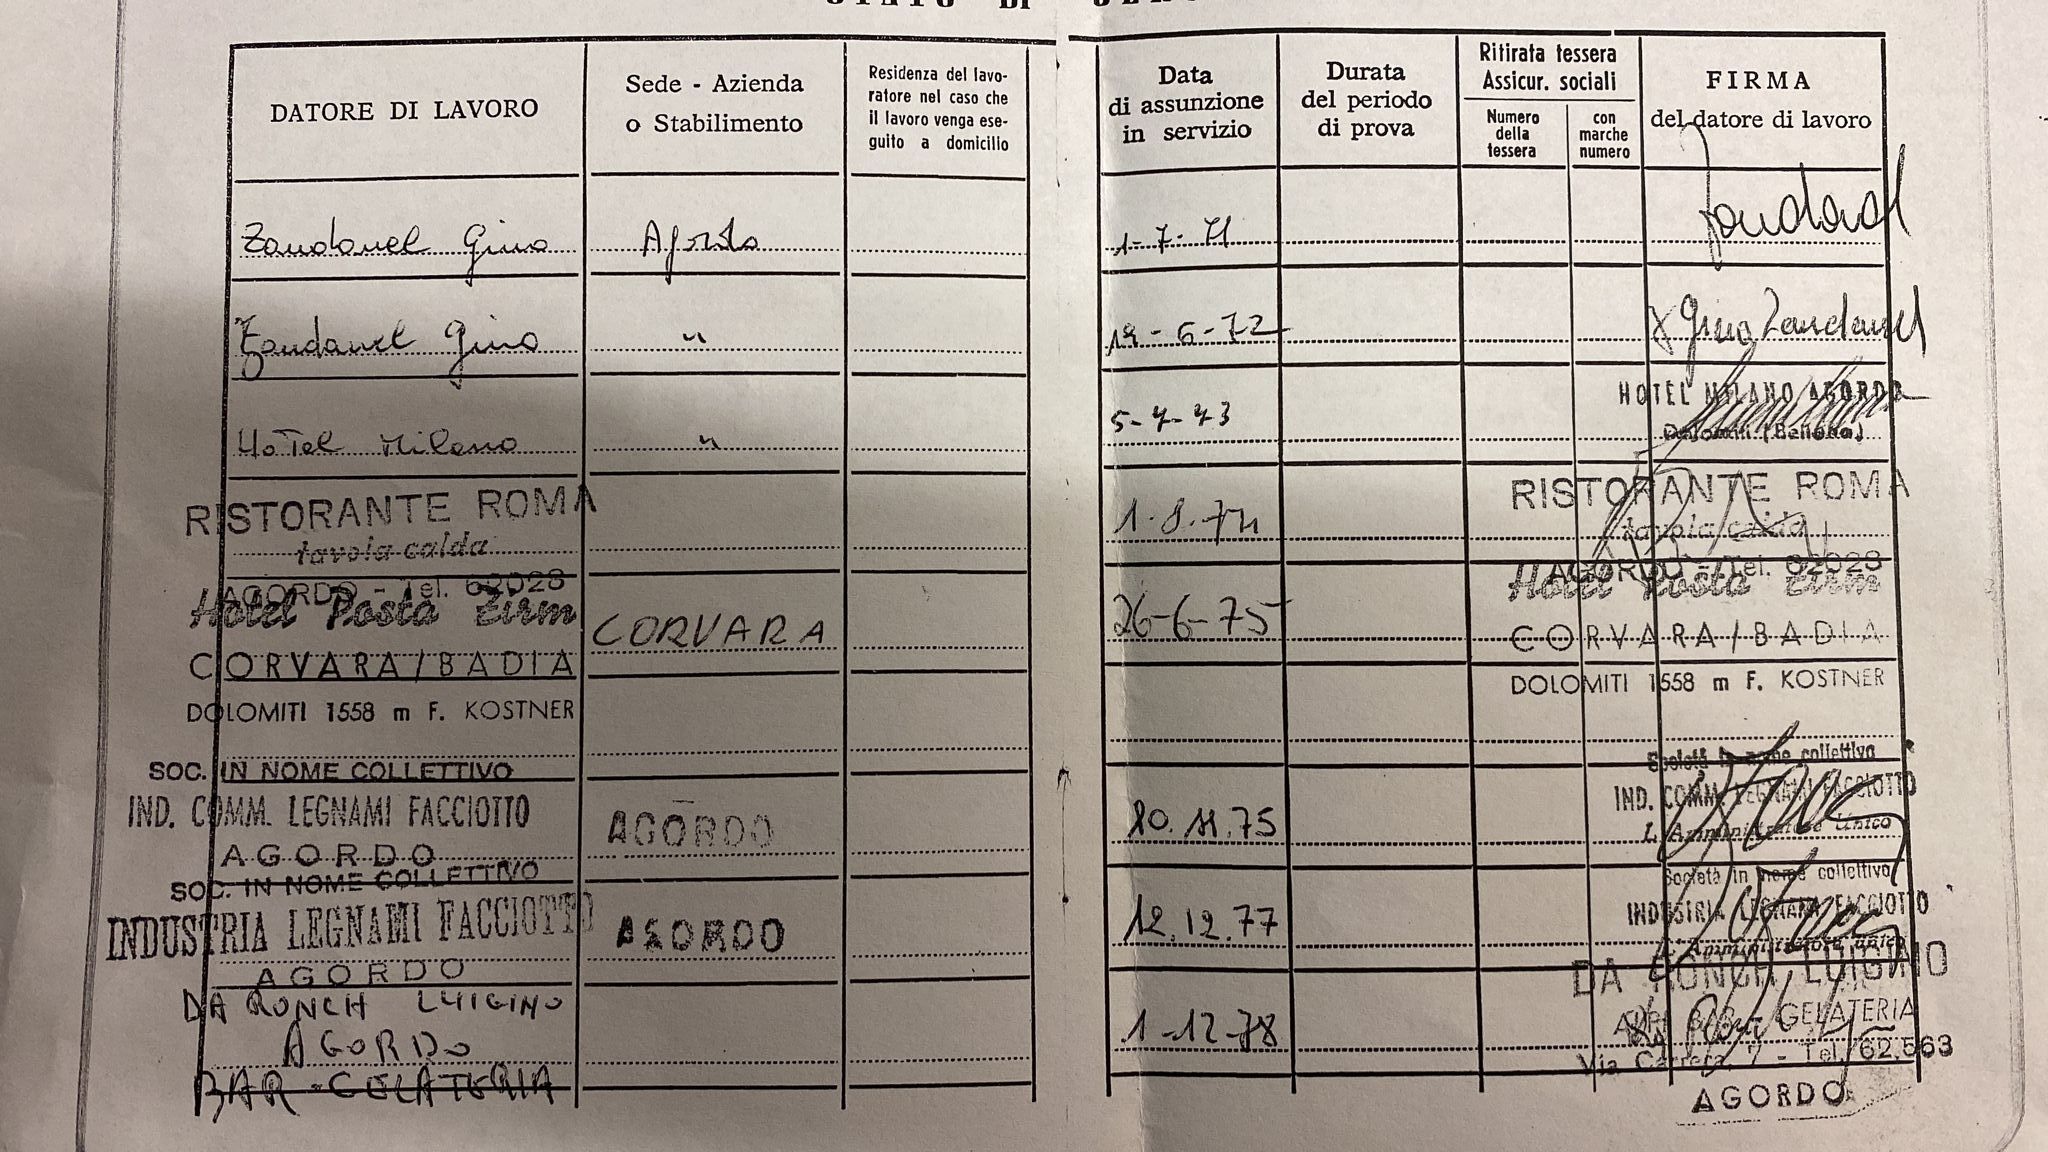 DATORE DI LAVORO
Sede - Azienda
o Stabilimento
Residenza del lavo-
ratore nel caso che
il lavoro venga ese-
guito a domicilio
Data
di assunzione
in servizio
Durata
del periodo
di prova
Ritirata tessera
Assicur. sociali
Numero
della
tessera
con
marche
numero
FIRMA
del datore di lavoro
Zandanel Gino Agordo 1-7-71 Zandanel
Zandanel Gino " 19-6-72 Gino Zandanel
Hotel Milano " 5-7-73
HOTEL MILANO AGORDO
Dolomiti (Belluno)
RISTORANTE ROMA
tavola calda
AGORDO - Tel. 62028
1-8-74
RISTORANTE ROMA
tavola calda
AGORDO - Tel. 62028
Hotel Posta Zirm
CORVARA/BADIA
DOLOMITI 1558 m F. KOSTNER
CORVARA 26-6-75
Hotel Posta Zirm
CORVARA/BADIA
DOLOMITI 1558 m F. KOSTNER
SOC. IN NOME COLLETTIVO
IND. COMM. LEGNAMI FACCIOTTO
AGORDO
AGORDO 10.11.75
Società in nome collettivo
IND. COMM. LEGNAMI FACCIOTTO
L'Amministratore Unico
SOC. IN NOME COLLETTIVO
INDUSTRIA LEGNAMI FACCIOTTO
AGORDO
AGORDO 12.12.77
Società in nome collettivo
INDUSTRIA LEGNAMI FACCIOTTO
L'Amministratore Unico
DA RONCH LUIGINO
AGORDO
BAR-GELATERIA
1-12-78
DA RONCH LUIGINO
BAR GELATERIA
Via Carrera, 7 - Tel. 62.563
AGORDO